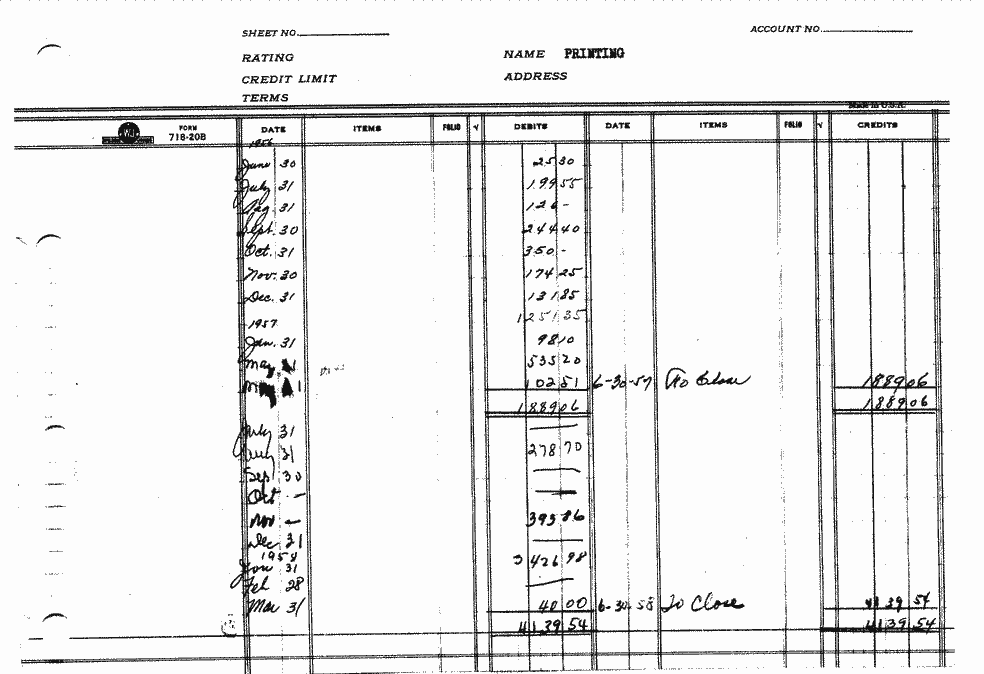 SHEET NO. ACCOUNT NO.
RATING NAME PRINTING
CREDIT LIMIT ADDRESS
TERMS
MADE IN U.S.A.
FORM 718-20B DATE ITEMS FOLIO √ DEBITS DATE ITEMS FOLIO √ CREDITS
1956
June 30 25 30
July 31 199 55
Aug. 31 126 -
Sept. 30 244 40
Oct. 31 350 -
Nov. 30 174 25
Dec. 31 131 85
1251 35
1957
Jan. 31 98 10
535 20
102 51 6-30-57 To Close 1889 06
1889 06 1889 06
July 31
Aug 31 278 70
Sep 30
Oct -
Nov - 393 86
Dec 31
1958
Jan 31 3 426 98
Feb 28
Mar 31 40 00 6-30-58 To Close 4139 54
4139 54 4139 54